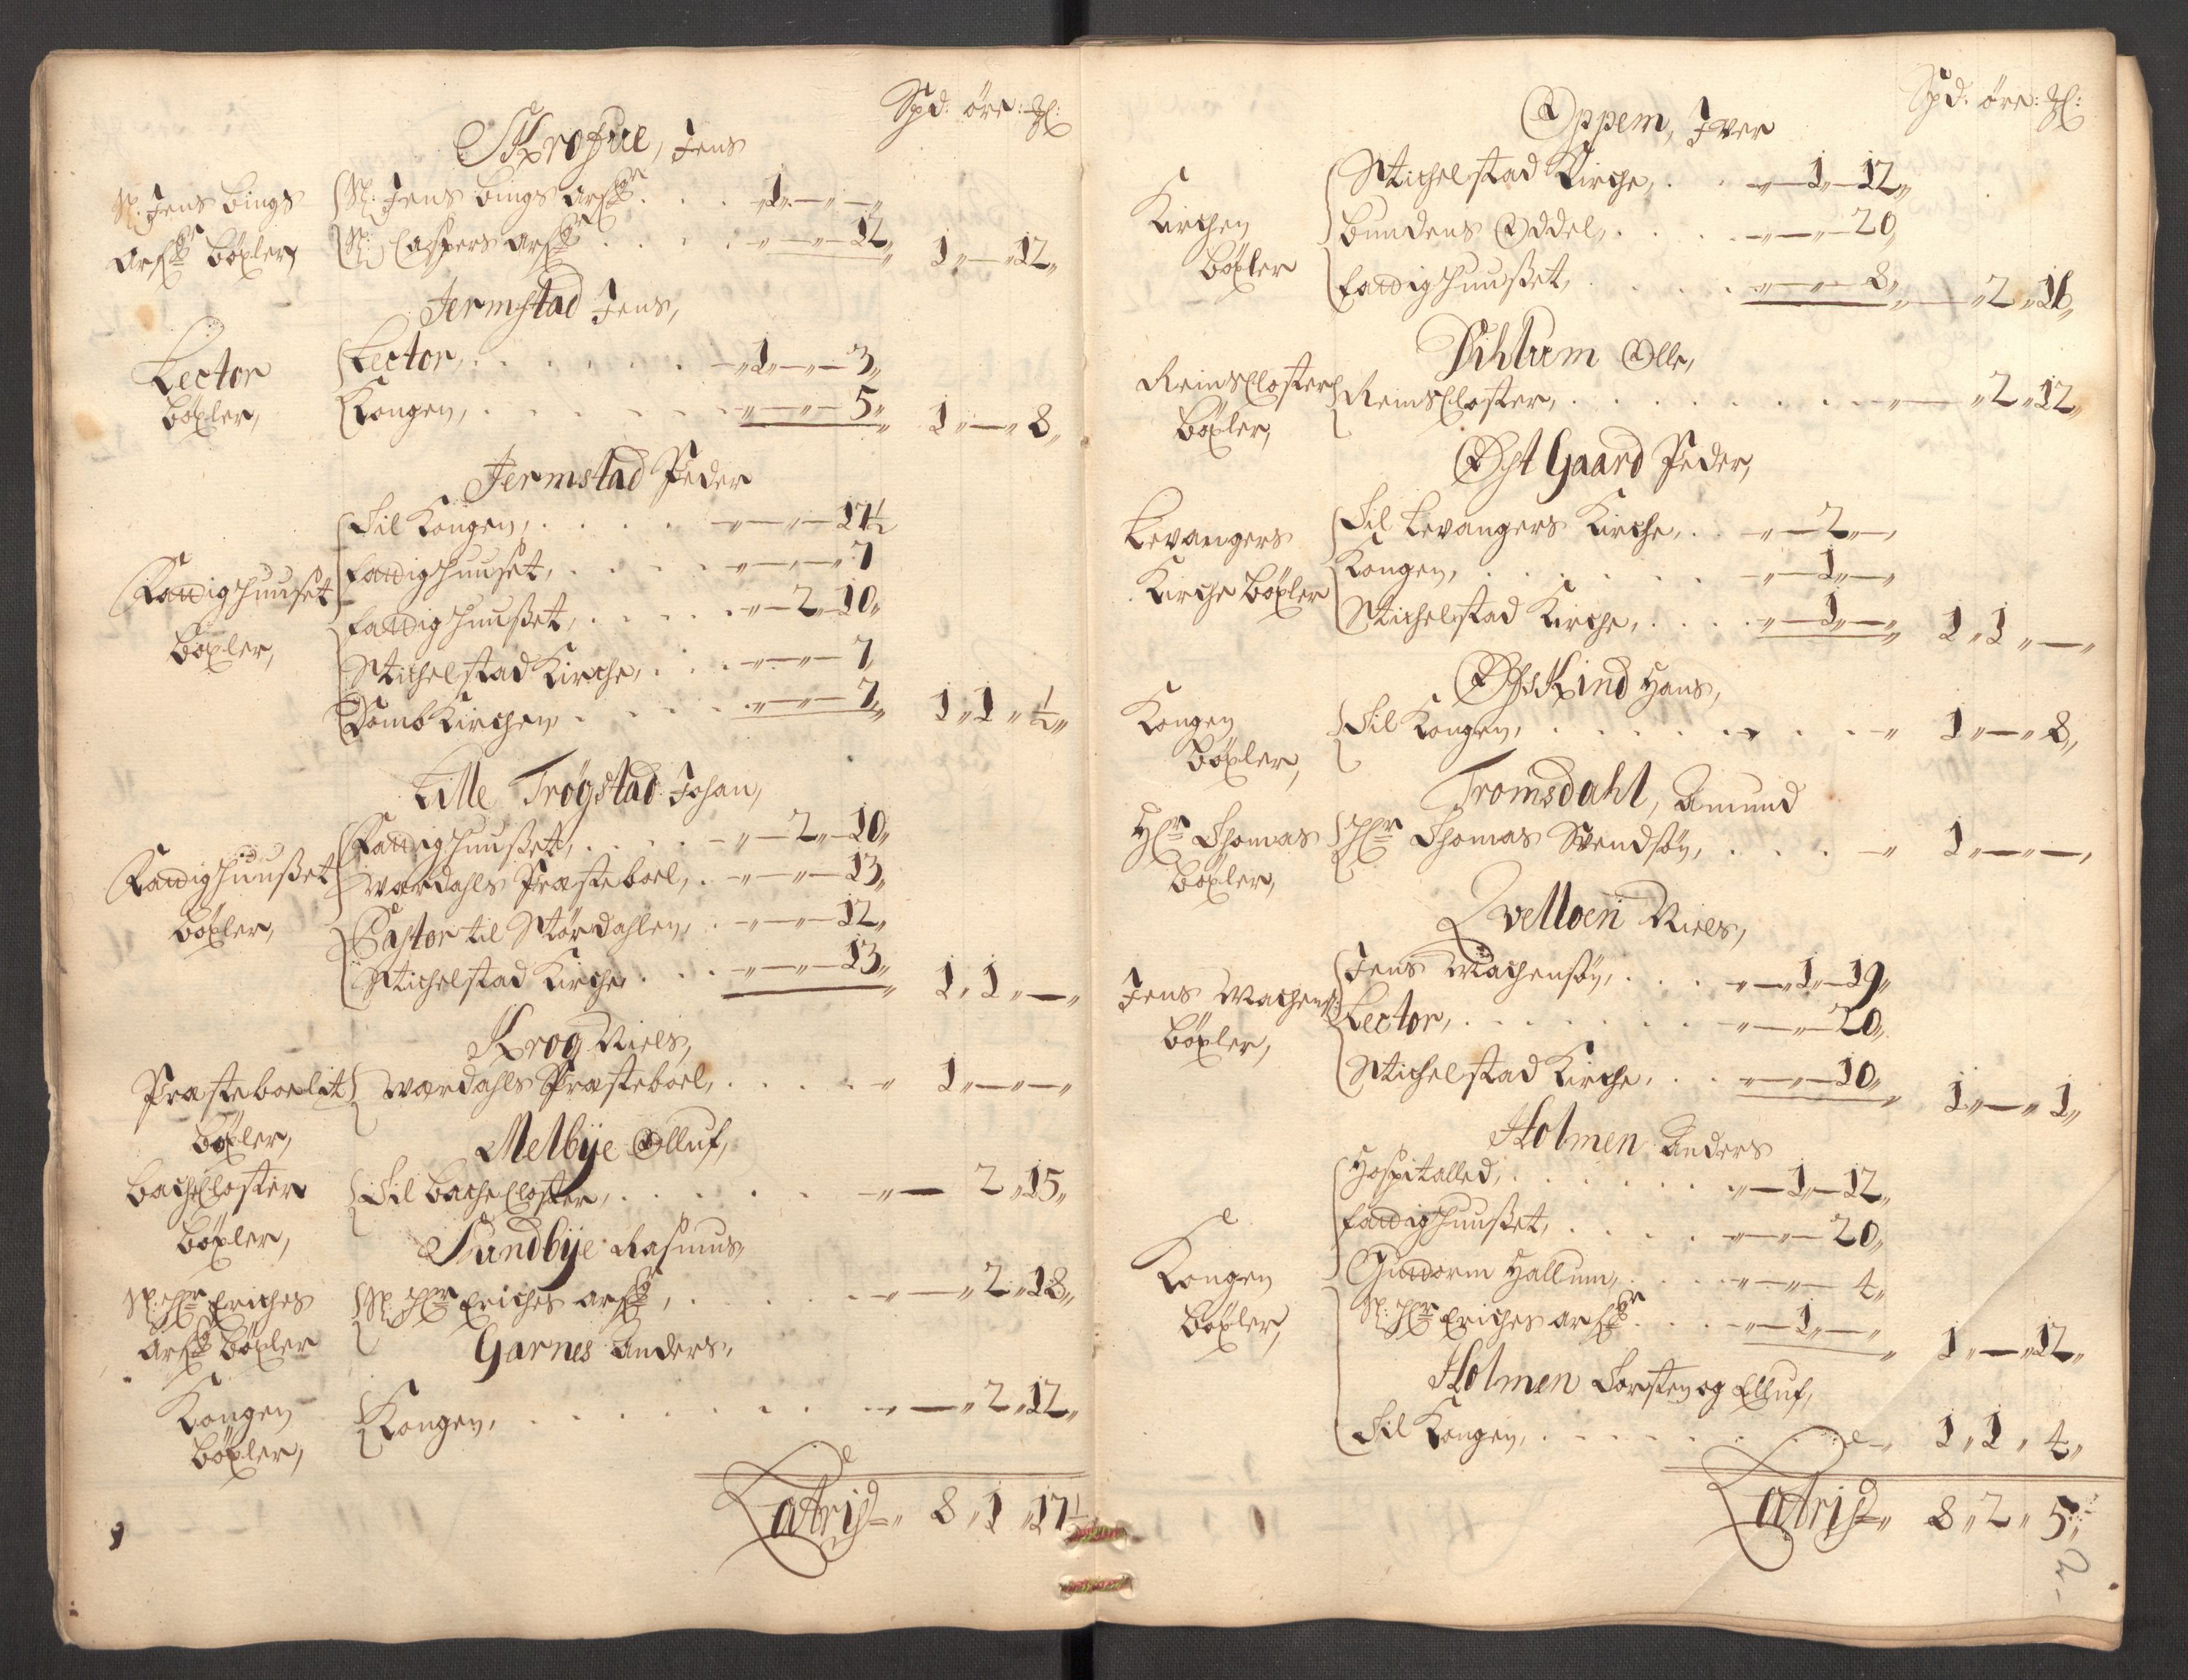 Spd: øre: ꝫl:
Skrofue, Jens
Sl: Jens Bings
Arfr Bøxler
Sl: Jens Bings Arfr . . . 1 „ — „ — „
Sl: Caspers Arfr . . . „ — „ — 12 „ 1 „ — „ 12 „
Jermstad Jens,
Lector
Bøxler,
Lector, . . . . „ 1 „ — „ — 3 „
Kongen, . . . . „ — „ — 5 „ 1 „ — „ 8 „
Jermstad Peder
Fattighuuset
Bøxler,
Til Kongen, . . . . „ — „ — 17½
Fattighuuset, . . . . „ — „ — 7
Fattighuusset, . . . . „ — 2 „ 10 „
Stichelstad Kirche, . . . „ — „ — 7,
Domb Kirchen . . . . „ — „ — 7 „ 1 „ 1 „ ½ „
Lille Trøgstad Johan,
Fattighuusset
Bøxler,
Fattighuusset, . . . . „ — 2 „ — 10 „
Wærdahls Præsteboel, . „ — „ — 13 „
Pastor til Størdahlen, . „ — „ — 12 „
Stichelstad Kirche . . . „ — „ — 13 „ 1 „ 1 „ — „
Krog Niels,
Præsteboelit
Bøxler,
Wærdahls Præsteboel, . . . . „ 1 „ — „ — „
Melbye Olluf,
Bache Closter
Bøxler,
Til Bache Closter, . . . . . „ — 2 „ 15 „
Sundbye Rasmus,
Sl: Hr Eriches
Arfr Bøxler
Sl: Hr Eriches Arfr, . . . . . „ — „ 2 „ 18 „
Garnes Anders,
Kongen
Bøxler,
Kongen, . . . . . . „ — „ 2 „ 12 „
Latris „ 8 „ 1 „ 17½
Spd: øre: ꝫl:
Oppem, Iver
Kirchen
Bøxler
Stichelstad Kirche, . . „ — 1 „ — 12 „
Bundens Oddel, . . . . „ — „ — 20 „
Fattighuusset, . . . . „ — „ — 8 „ „ — „ 2 „ 16 „
Olle,
Reins Closter
Bøxler,
Reins Closter, . . . . . . . „ — „ 2 „ 12 „
Øst Gaard Peder,
Levangers
Kirche Bøxler
Til Levangers Kirche, . . „ — 2 „ — „
Kongen, . . . . . „ — 1 „ — „
Stichelstad Kirche, . . . . „ — 1 „ — „ 1 „ 1 „ — „
Hans,
Kongen
Bøxler,
Til Kongen, . . . . . . . „ 1 „ — „ 8 „
Tromsdahl, Amund
Hr Thomas
Bøxler,
Hr Thomas Svendsøn, . . . . „ 1 „ — „ — „
Qvelloen Niels,
Jens Wachens:
Bøxler,
Jens Wachensøn, . . . „ — 1 „ — 19 „
Lector, . . . . . . „ — „ — 20 „
Stichelstad Kirche, . . „ — „ — 10 „ 1 „ — „ 1 „
Holmen Anders
Kongen
Bøxler,
Hospitalled, . . . . . . „ — 1 „ — 12 „
Fattighuusset, . . . . . „ — „ — 20 „
Guttorm Hallum, . . . . „ — „ — 4 „
Sl: Hr Eriches Arfr . . . „ — 1 „ — „ 1 „ — „ 12 „
Holmen Torsten og Elluf,
Til Kongen, . . . . . . . . „ 1 „ 1 „ 4 „
Latris „ 8 „ 2 „ 5 „